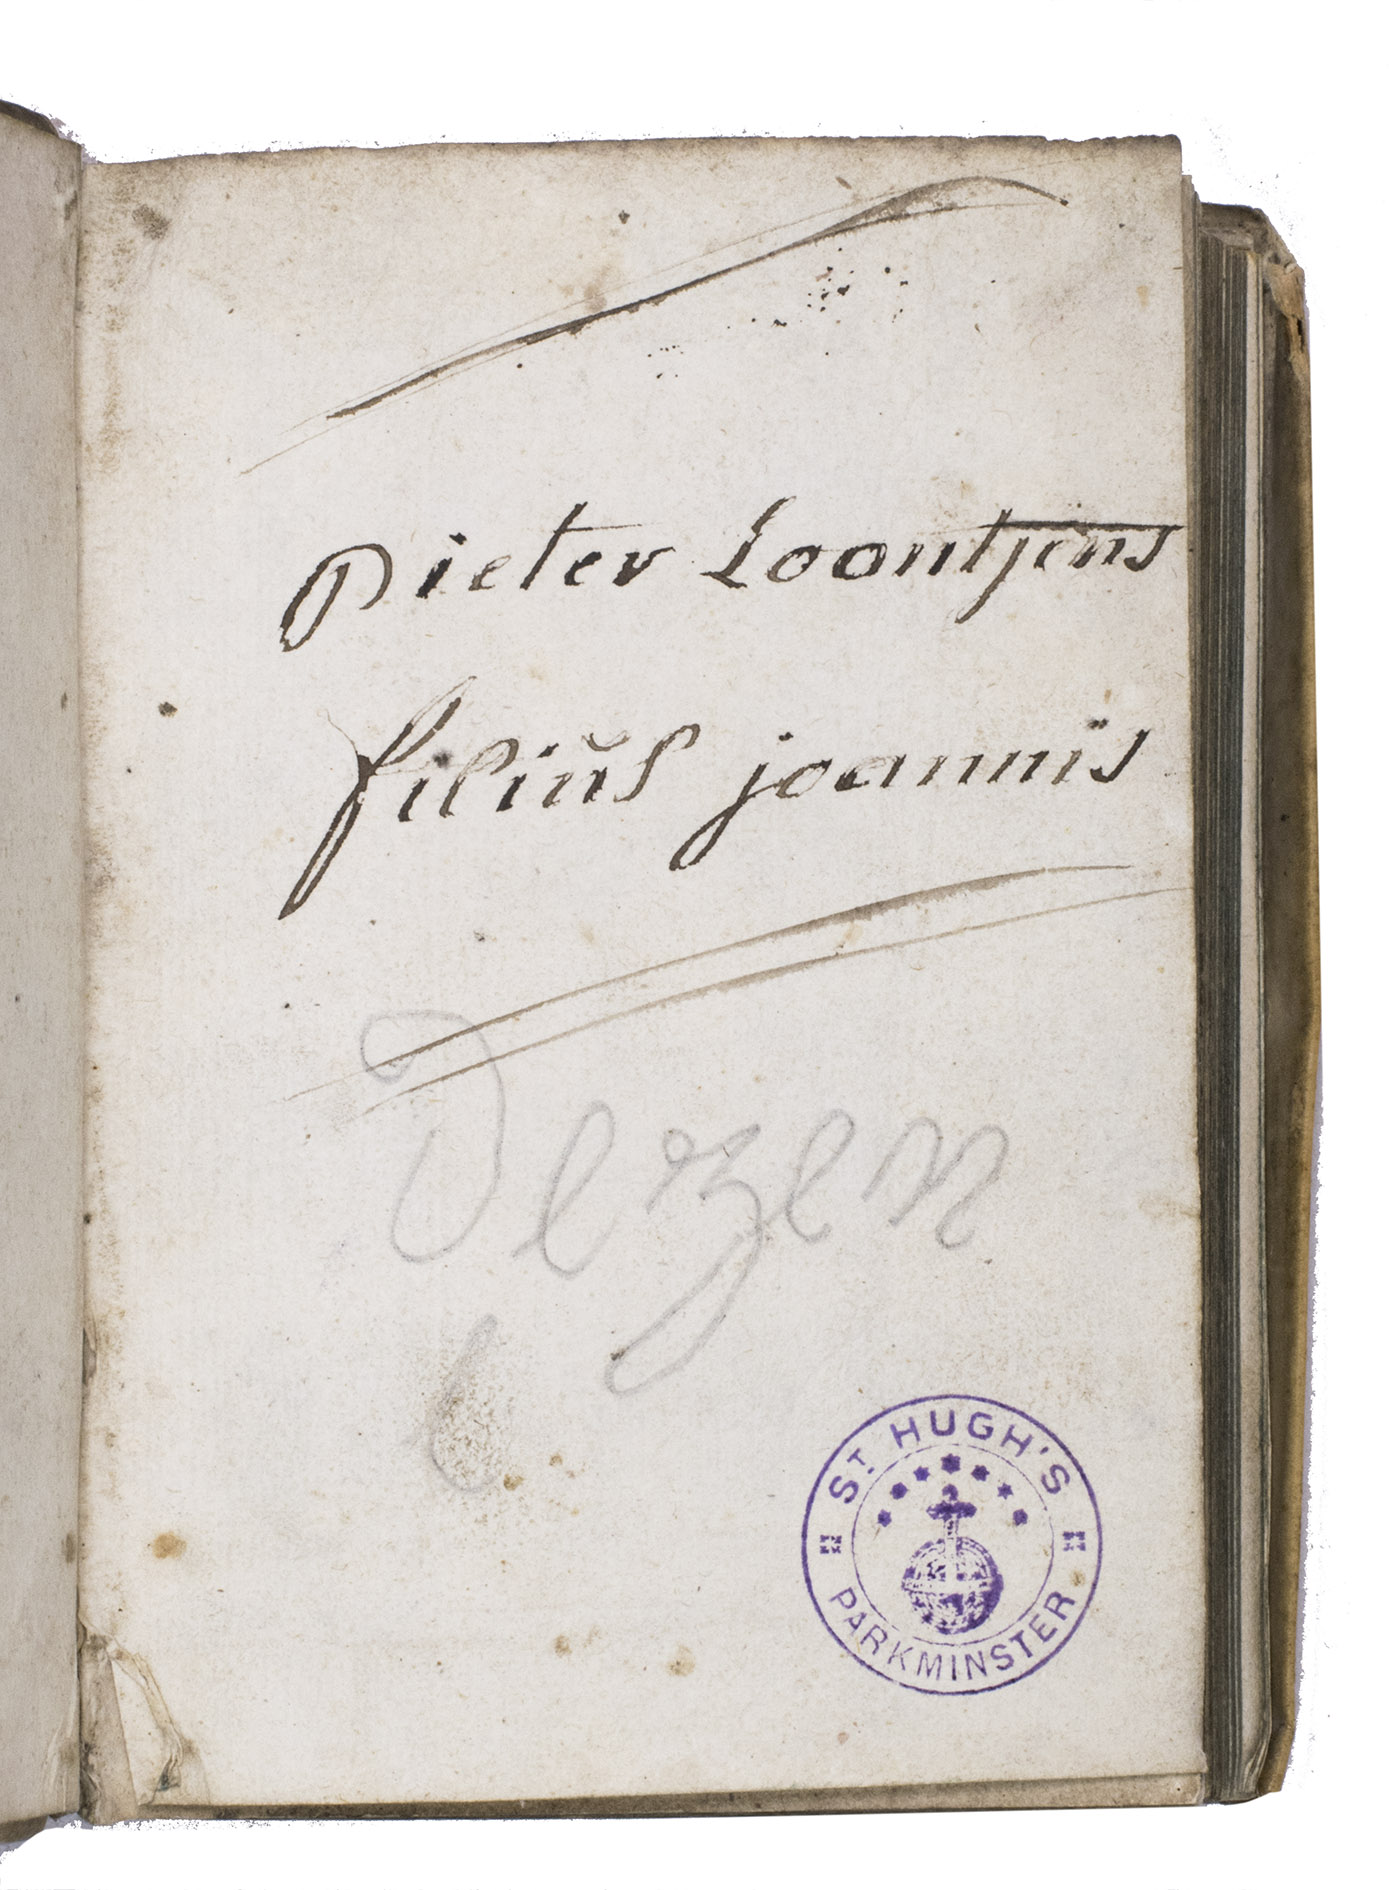 Pieter Loontjens
filiŭs joannis
ST. HUGH'S
PARKMINSTER